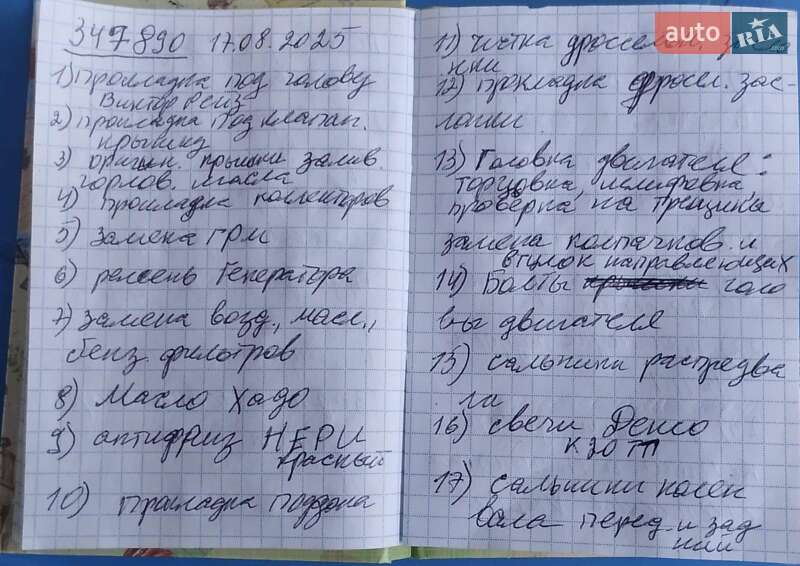 347890 17.08.2025
1) Прокладка под голову
Виктор Рейз
2) Прокладка под клапан.
крышку
3) оригин. крышки залив.
горлов. масла
4) прокладка коллекторов
5) замена ГРМ
6) ремень генератора
7) замена возд., масл.,
бенз. фильтров
8) Масло Хадо
9) антифриз НЕРИ
красный
10) прокладка поддона
11) чистка дроссельн. засло
нки
12) прокладка дросел. зас-
лонки
13) Головка двигателя:
торцовка, шлифовка,
проверка на трещинка
замена колпачков. и
втулок направляющих
14) Болты голо
вы двигателя
15) сальники распредва
ла
16) свечи Денсо
К 20 ТТ
17) сальники колен
вала перед и зад
ний
auto RIA